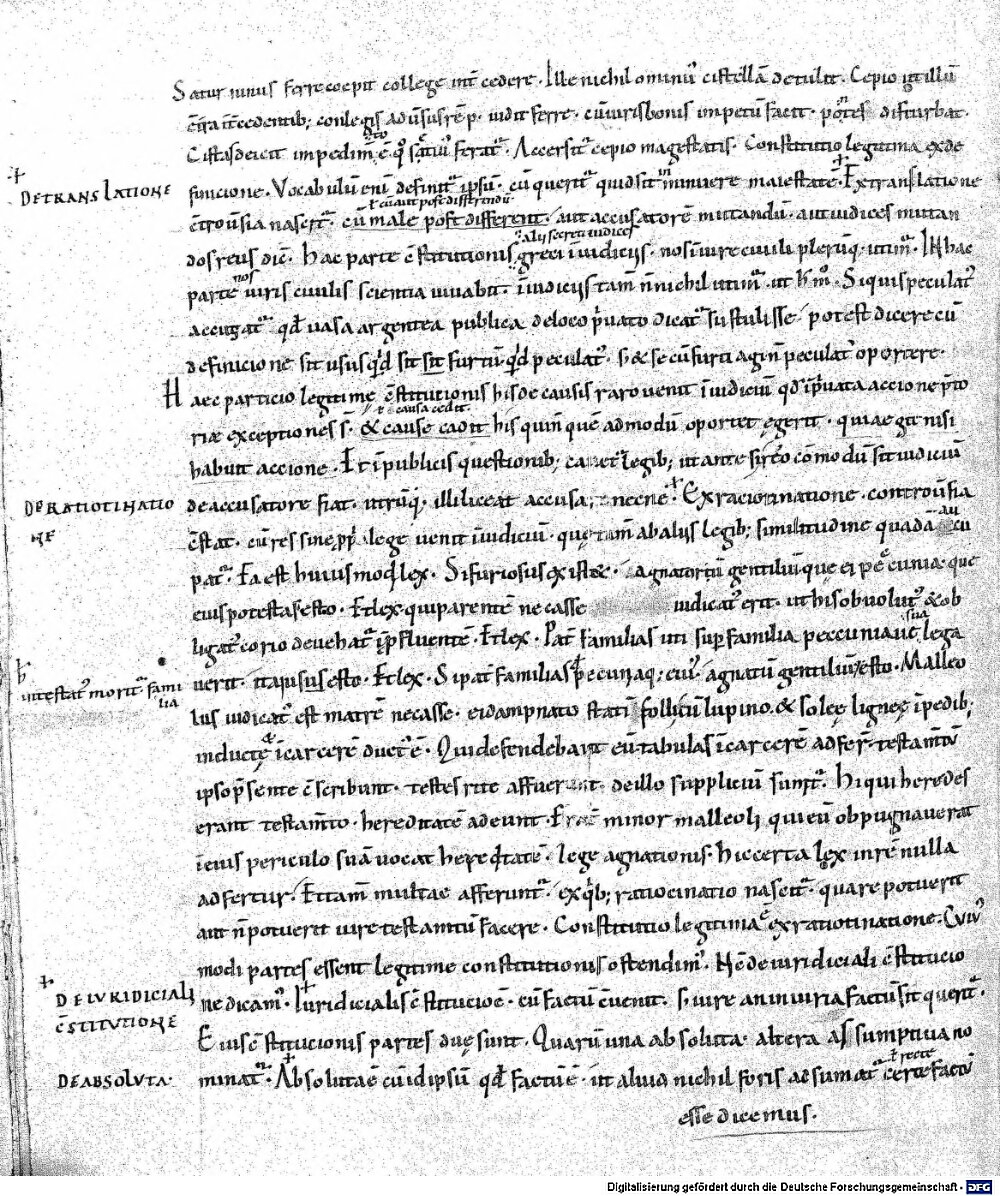 Saturninus ferre coepit college int̄ cedere. Ille nichilominuˀ cistellā detulit. Cepio ut illū
c̄tra īt̄cedentib; conlegis aduˀsus rēp. uidit ferre. cū uiris bonis impetū facit. pōtes disturbat.
Cistas deicit impedim̄to ē q̊ s̄ativˀ feratˀ. Accersitˀ cepio magestatis. Constitutio legitima ex de
DE TRANSLATIONE
funcione. Vocabulū enī definitˀ ipsū. cū queritˀ quid sit minuere maiestatē. Ex translatione
ł cū aut post differendū
c̄trouˀsia nascitˀ. cū male post different. aut accusatorē mutandū. aut iudices mutan
alii secreti iudices
dos reus dic̄. Hac parte c̄stitutionis greci ī iudiciis. nos ī iure ciuili plerūq. utimˀ. IN hac
nos
parte uiris ciuilis scientia iuuabit. ī iudiciis tam̄ n̄ nichil utimˀ. ut h̄ m̊. Si quis peculatˀ
accugatˀ qđ uasa argentea publica de loco p̄uato dicatˀ sustulisse potest dicere cū
definicione sit usus qđ sit sit furtū qđ peculatˀ. s; & se cū furti agi n̄ peculatˀ oportere.
Haec particio legitime c̄stitutionis his de causis raro uenit ī iudiciū qđ ī p̄uata accione p̄to
ł causa cadit
riæ exceptiones s̄. & cause cadit his qui n̄ quē admodū oportet egerit. quia egit nisi
habuit accione. Et ī publicis questionib; cauet̄ legib; ut ante si reo cōmodū sit iudiciū
DE RATIOTINATIO
NE
de accusatore fiat. utrūq; illi liceat accusare necne. Ex raciocinatione. controuˀsia
c̄stat. cū res sine pp̄ lege uenit ī iudiciū. que tam̄ ab aliis legib; similitudine quadā au cu
patˀ. Ea est huiusmođi lex. Si furiosus existet. Agnatorū gentiliūque ei pecuniæque
eius potestas esto. Et lex qui parentē necasse iudicatˀ erit. ut his obuolutˀ & ob
sua
ligatˀ corio deuehatˀ ī p̄fluentē. Et lex. Pat̄ familias uti sup̄ familia peccuniaue lega
intestatˀ moritˀ fami
lia
uerit. ita ius esto. Et lex. Si pat̄ familias pecuniaq; eiuˀ agnatū gentiliū esto. Malleo
lus iudicatˀ est matrē necasse. ei dampnato statī follicul lupino. & soleę ligneę ī pedib;
inductę ī carcerē ductˀ ē. Qui defendebant eū tabulas ī carcerē adfer̄. testam̄tū
ipso p̄sente c̄scribunt. testes rite affuerunt. de illo suppliciū sumitˀ. Hi qui heredes
erant testam̄to. hereditatē adeunt. Frat̄ minor malleoli qui eū obpugnauerat
ī eius periculo suā uocat hereditatē. lege agnationis. Hic certa lex in rē nulla
adfertur. Et tam̄ multae afferuntˀ. ex q̄b; ratiocinatio nascitˀ. quare potuerit
aut n̄ potuerit iure testam̄tū facere. Constitutio legitima ē ex ratiotinatione. Cuiuˀ
modi partes essent legitime constitutionis ostendimˀ. Nc̄ de iuridiciali c̄stitutio
DE IVRIDICIALI
C̄STITVTIONE
ne dicamˀ. Iuridicialis c̄stitucio ē. cū factū c̄uenit. s; iure an iniuria factū sit queritˀ.
Eius c̄stitucionis partes duę sunt. Quarū una absoluta. altera assumptiua no
DE ABSOLVTA.
ł recte
minatˀ. Absoluta ē cū id ipsū qđ factū ē. ut alia nichil foris adsumatˀ certe factū
esse dicemus.
Digitalisierung gefördert durch die Deutsche Forschungsgemeinschaft - DFG